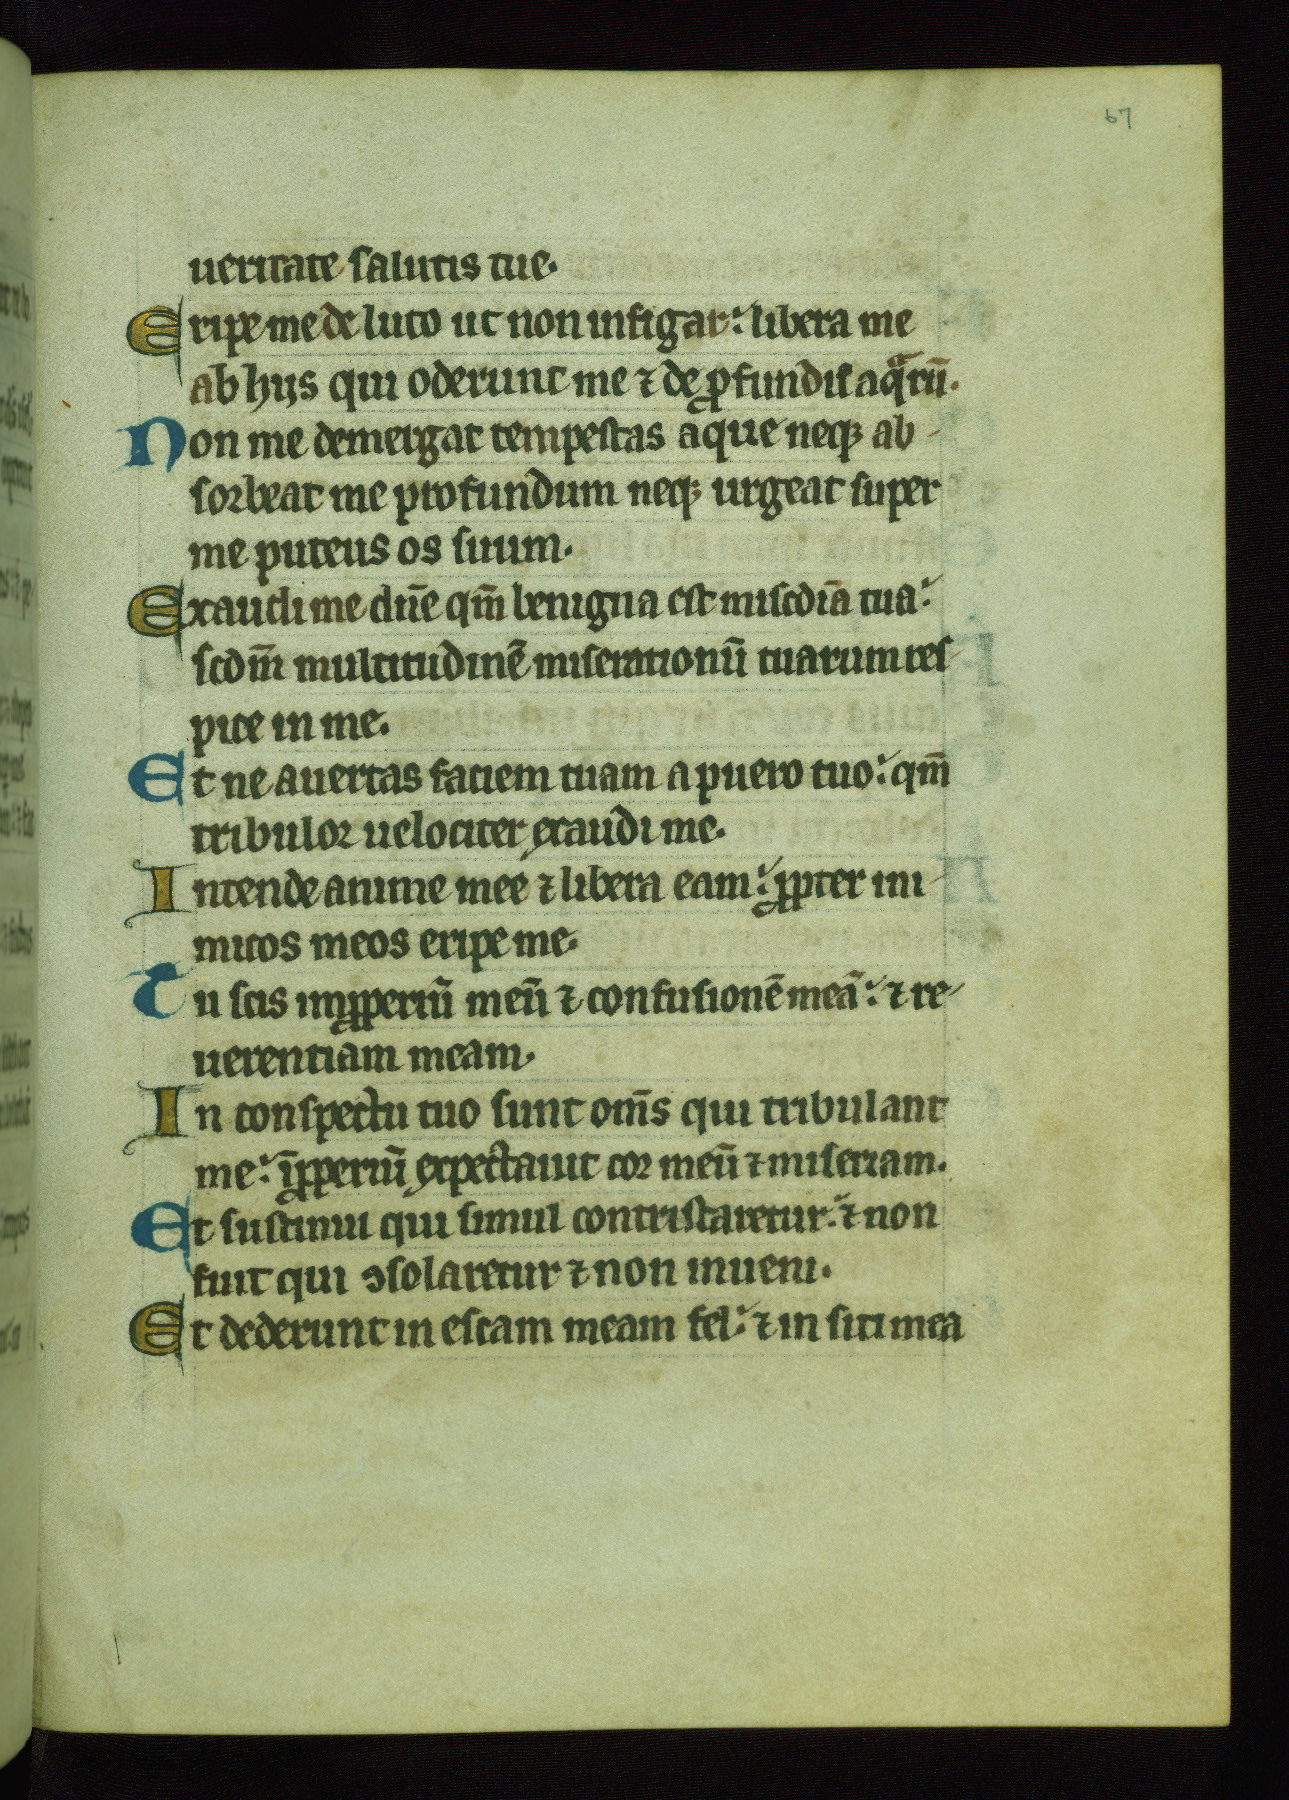 67
ueritate salutis tue.
Eripe me de luto ut non infigar: libera me
ab hijs qui oderunt me ⁊ de ꝓfundis aqͣrū.
Non me demergat tempestas aque neqꝫ ab-
sorbeat me profundum neqꝫ urgeat super
me puteus os suum.
Exaudi me dn̄e qm̄ benigna est misc̄dia tua:
scdm̄ multitudinē miserationū tuarum res-
pice in me.
Et ne auertas faciem tuam a puero tuo: qm̄
tribulor uelociter exaudi me.
Intende anime mee ⁊ libera eam: ꝓpter ini-
micos meos eripe me.
Tu scis imꝓperiū meū ⁊ confusionē meā: ⁊ re-
uerentiam meam.
In conspectu tuo sunt om̄s qui tribulant
me: īꝓperiū expectauit cor meū ⁊ miseriam.
Et sustinui qui simul contristaretur: ⁊ non
fuit qui ꝯsolaretur ⁊ non inueni.
Et dederunt in escam meam fel: ⁊ in siti mea